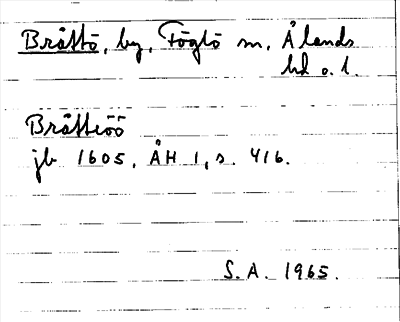 Bråttö, by, Föglö sn, Ålands
hd o. l.
Bråtteöö
jb 1605, ÅH 1, s. 416.
S.A. 1965.